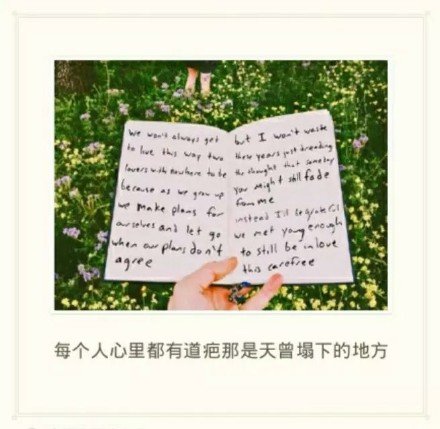 we won't always get
to live this way two
lovers with nowhere to be
because as we grow up
we make plans for
ourselves and let go
when our plans don't
agree
but I won't waste
these years just dreading
the thought that someday
you might still fade
from me
instead I'll be grateful
we met young enough
to still be in love
this carefree
每个人心里都有道疤那是天曾塌下的地方